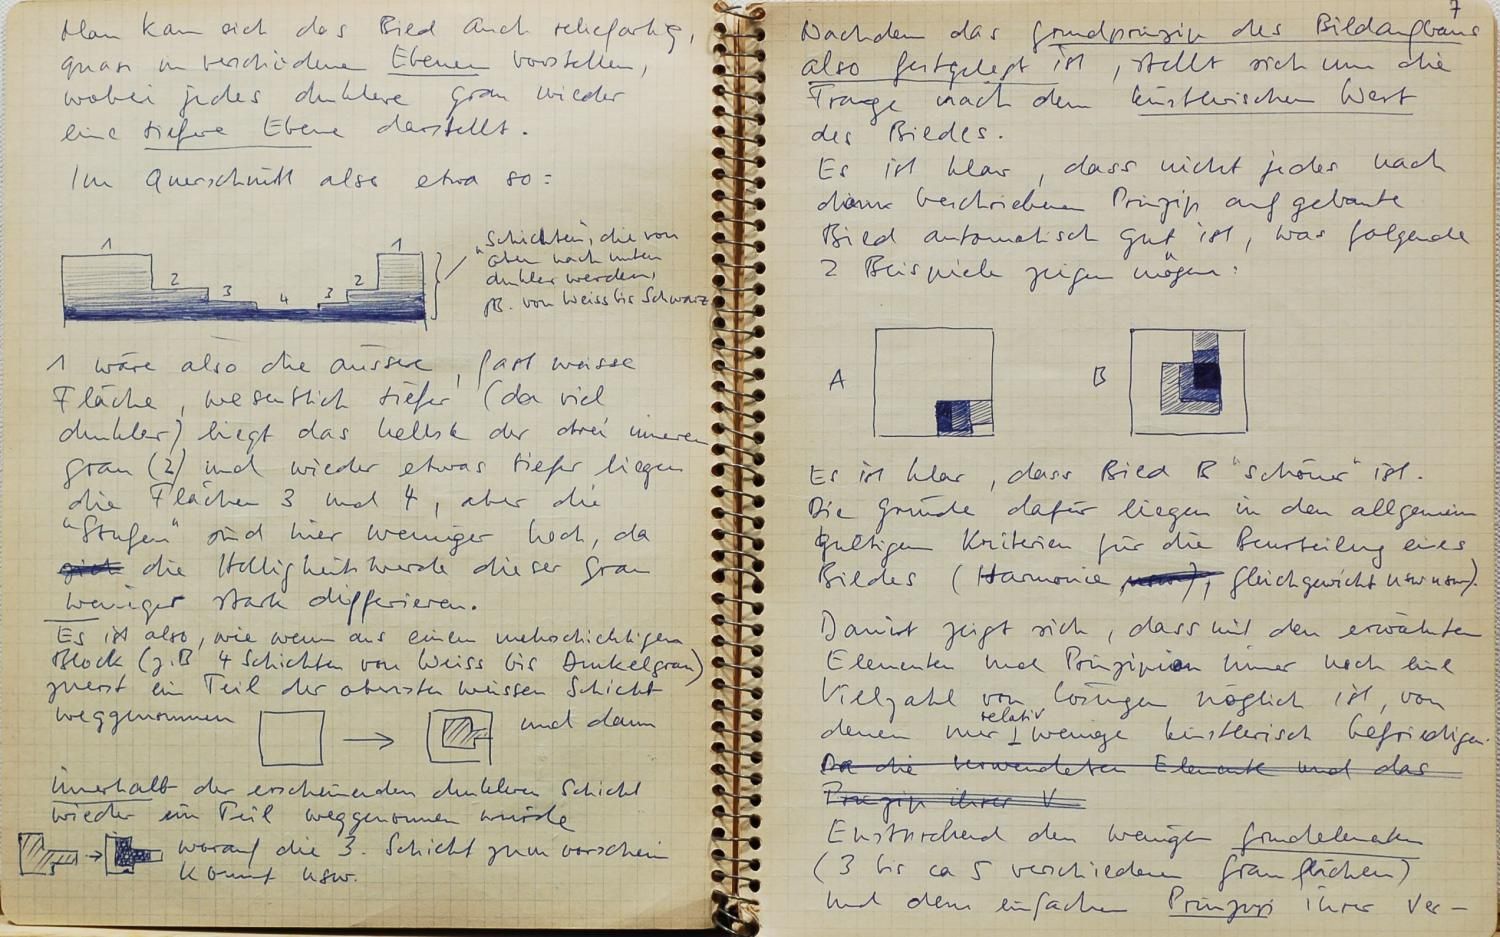 Man kann sich das Bild auch reliefartig,
quasi in verschiedenen Ebenen vorstellen,
wobei jedes dunklere Grau wieder
eine tiefere Ebene darstellt.
Im Querschnitt also etwa so:
1 1
2 3 4 3 2
"Schichten", die von
oben nach unten
dunkler werden,
zB. von Weiss bis Schwarz
1 wäre also die äussere, fast weisse
Fläche, wesentlich tiefer (da viel
dunkler) liegt das hellste der drei inneren
Grau (2) und wieder etwas tiefer liegen
die Flächen 3 und 4, aber die
"Stufen" sind hier weniger hoch, da
die Helligkeitswerte dieser Grau
weniger stark differieren.
Es ist also, wie wenn aus einem mehrschichtigen
Block (z.B 4 Schichten von Weiss bis Dunkelgrau)
zuerst ein Teil der obersten weissen Schicht
weggenommen und dann
innerhalb der erscheinenden dunkleren Schicht
wieder ein Teil weggenommen würde
worauf die 3. Schicht zum vorschein
kommt usw.
7
Nachdem das Grundprinzip des Bildaufbaus
also festgelegt ist, stellt sich nun die
Frage nach dem künstlerischen Wert
des Bildes.
Es ist klar, dass nicht jedes nach
dem beschriebenen Prinzip aufgebaute
Bild automatisch gut ist, was folgende
2 Beispiele zeigen mögen:
A B
Es ist klar, dass Bild B "schöner" ist.
Die Gründe dafür liegen in den allgemein
gültigen Kriterien für die Beurteilung eines
Bildes (Harmonie, usw), Gleichgewicht usw usw).
Damit zeigt sich, dass mit den erwähnten
Elementen und Prinzipien immer noch eine
Vielzahl von Lösungen möglich ist, von
denen nur relativ wenige künstlerisch befriedigen.
Da die verwendeten Elemente und das
Prinzip ihrer V
Entsprechend den wenigen Grundelementen
(3 bis ca 5 verschiedenen Grauflächen)
und dem einfachen Prinzip ihrer Ver-